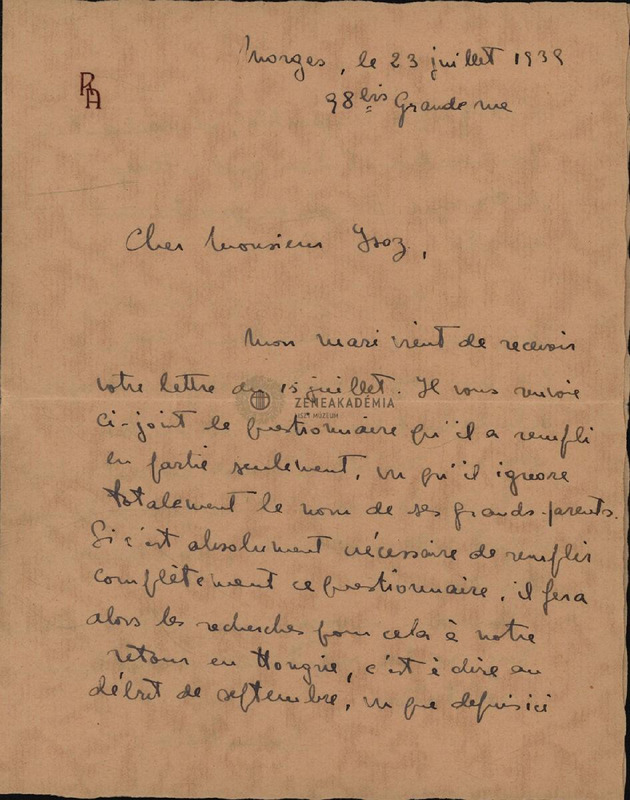 Morges, le 23 juillet 1939
98 bis Grande rue
RA
Cher Monsieur Isoz,
Mon mari vient de recevoir
votre lettre du 15 juillet. Il vous envoie
ZENEAKADÉMIA
LISZT MÚZEUM
ci-joint le questionnaire qu'il a rempli
en partie seulement, vu qu'il ignore
totalement le nom de ses grands-parents.
Si c'est absolument nécessaire de remplir
complètement ce questionnaire, il fera
alors les recherches pour cela à notre
retour en Hongrie, c'est à dire au
début de septembre, vu que depuis ici